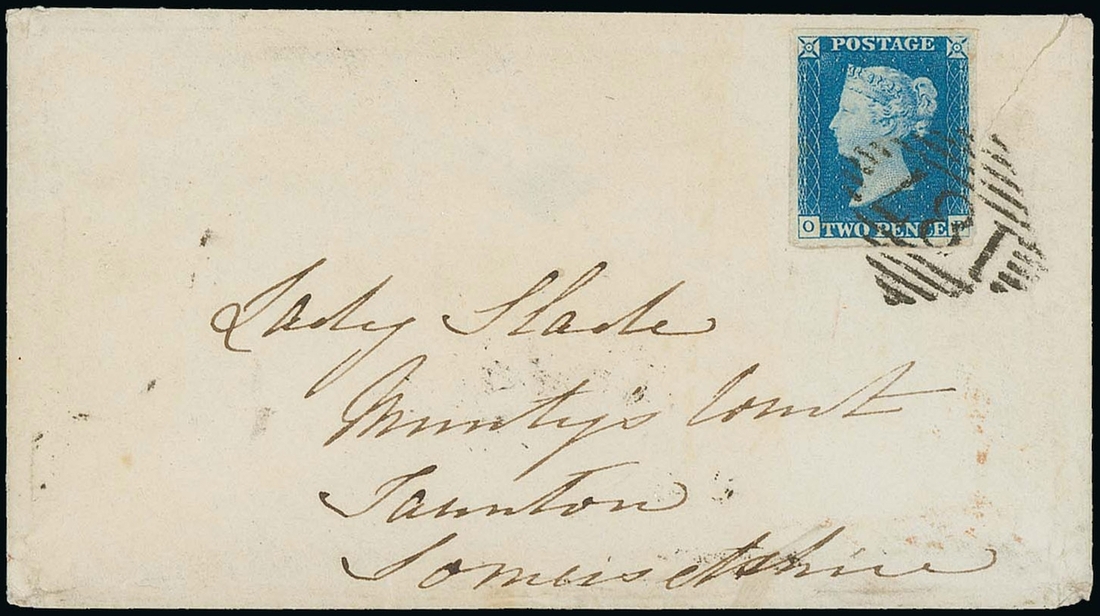 POSTAGE
TWO PENCE
O
Lady Slade
Munty's Court
Taunton
Somersetshire